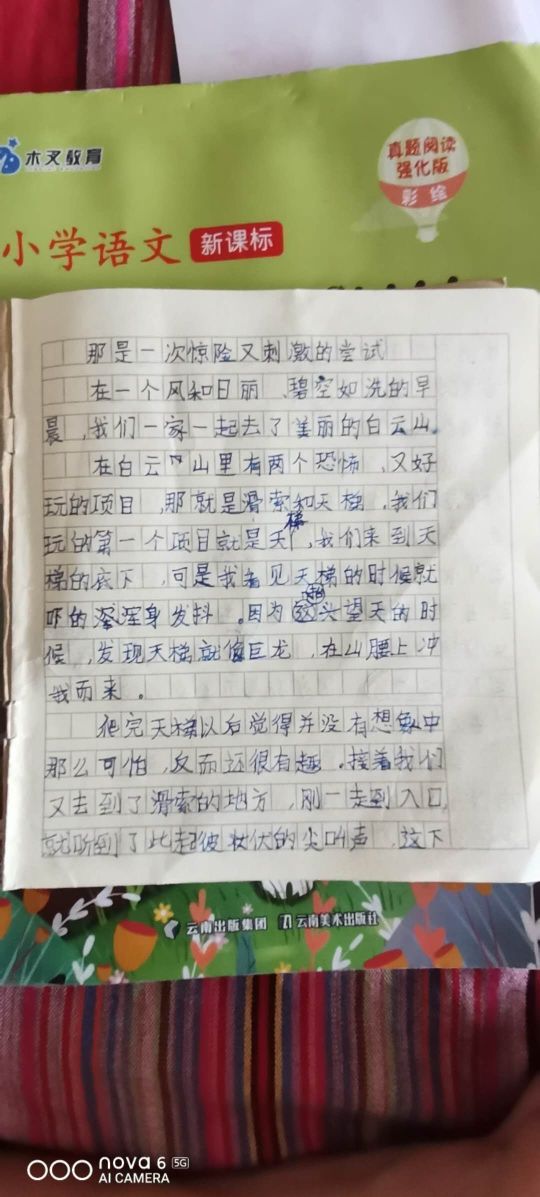 木叉教育
真题阅读
强化版
彩绘
小学语文 新课标
那是一次惊险又刺激的尝试
在一个风和日丽、碧空如洗的早
晨,我们一家一起去了美丽的白云山。
在白云山里有两个恐怖,又好
玩的项目,那就是滑索和天梯,我们
玩的第一个项目就是天梯,我们来到天
梯的底下,可是我看见天梯的时候就
吓的浑身发抖。因为抬头望天的时
候,发现天梯就像巨龙,在山腰上冲
我而来。
爬完天梯以后觉得并没有想象中
那么可怕,反而还很有趣。接着我们
又去到了滑索的地方,刚一走到入口,
就听到了此起彼伏的尖叫声,这下
云南出版集团 云南美术出版社
nova 6 5G
AI CAMERA